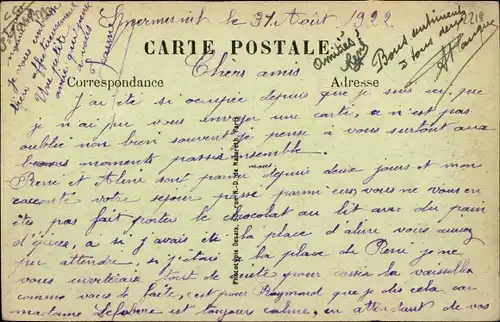 le 31 Août 1922
CARTE POSTALE
Correspondance
Adresse
Chers amis
J'ai été si occupée depuis que je suis ici que
je n'ai pu vous envoyer une carte, ce n'est pas
oublié non bien souvent je pense à vous surtout aux
bons moments passés ensemble.
René et Aline sont parmi nous depuis deux jours et mon
raconté votre séjour passé parmi eux, vous ne vous en
êtes pas fait porter le chocolat au lit avec du pain
d'épices, a si j'avais été la place d'aline vous auriez
pu attendre, si j'étais à la place de René je ne
vous inviterais tout de suite pour casser la vaisselle
comme vous le faite, c'est pour Raymond que je dis cela car
madame Lefebvre est toujours calme, en attendant de vos
Amitiés
Bons sentiments
à tous deux
2218
je vous
bien affectueusement
Une petite
amie qui pense
à vous